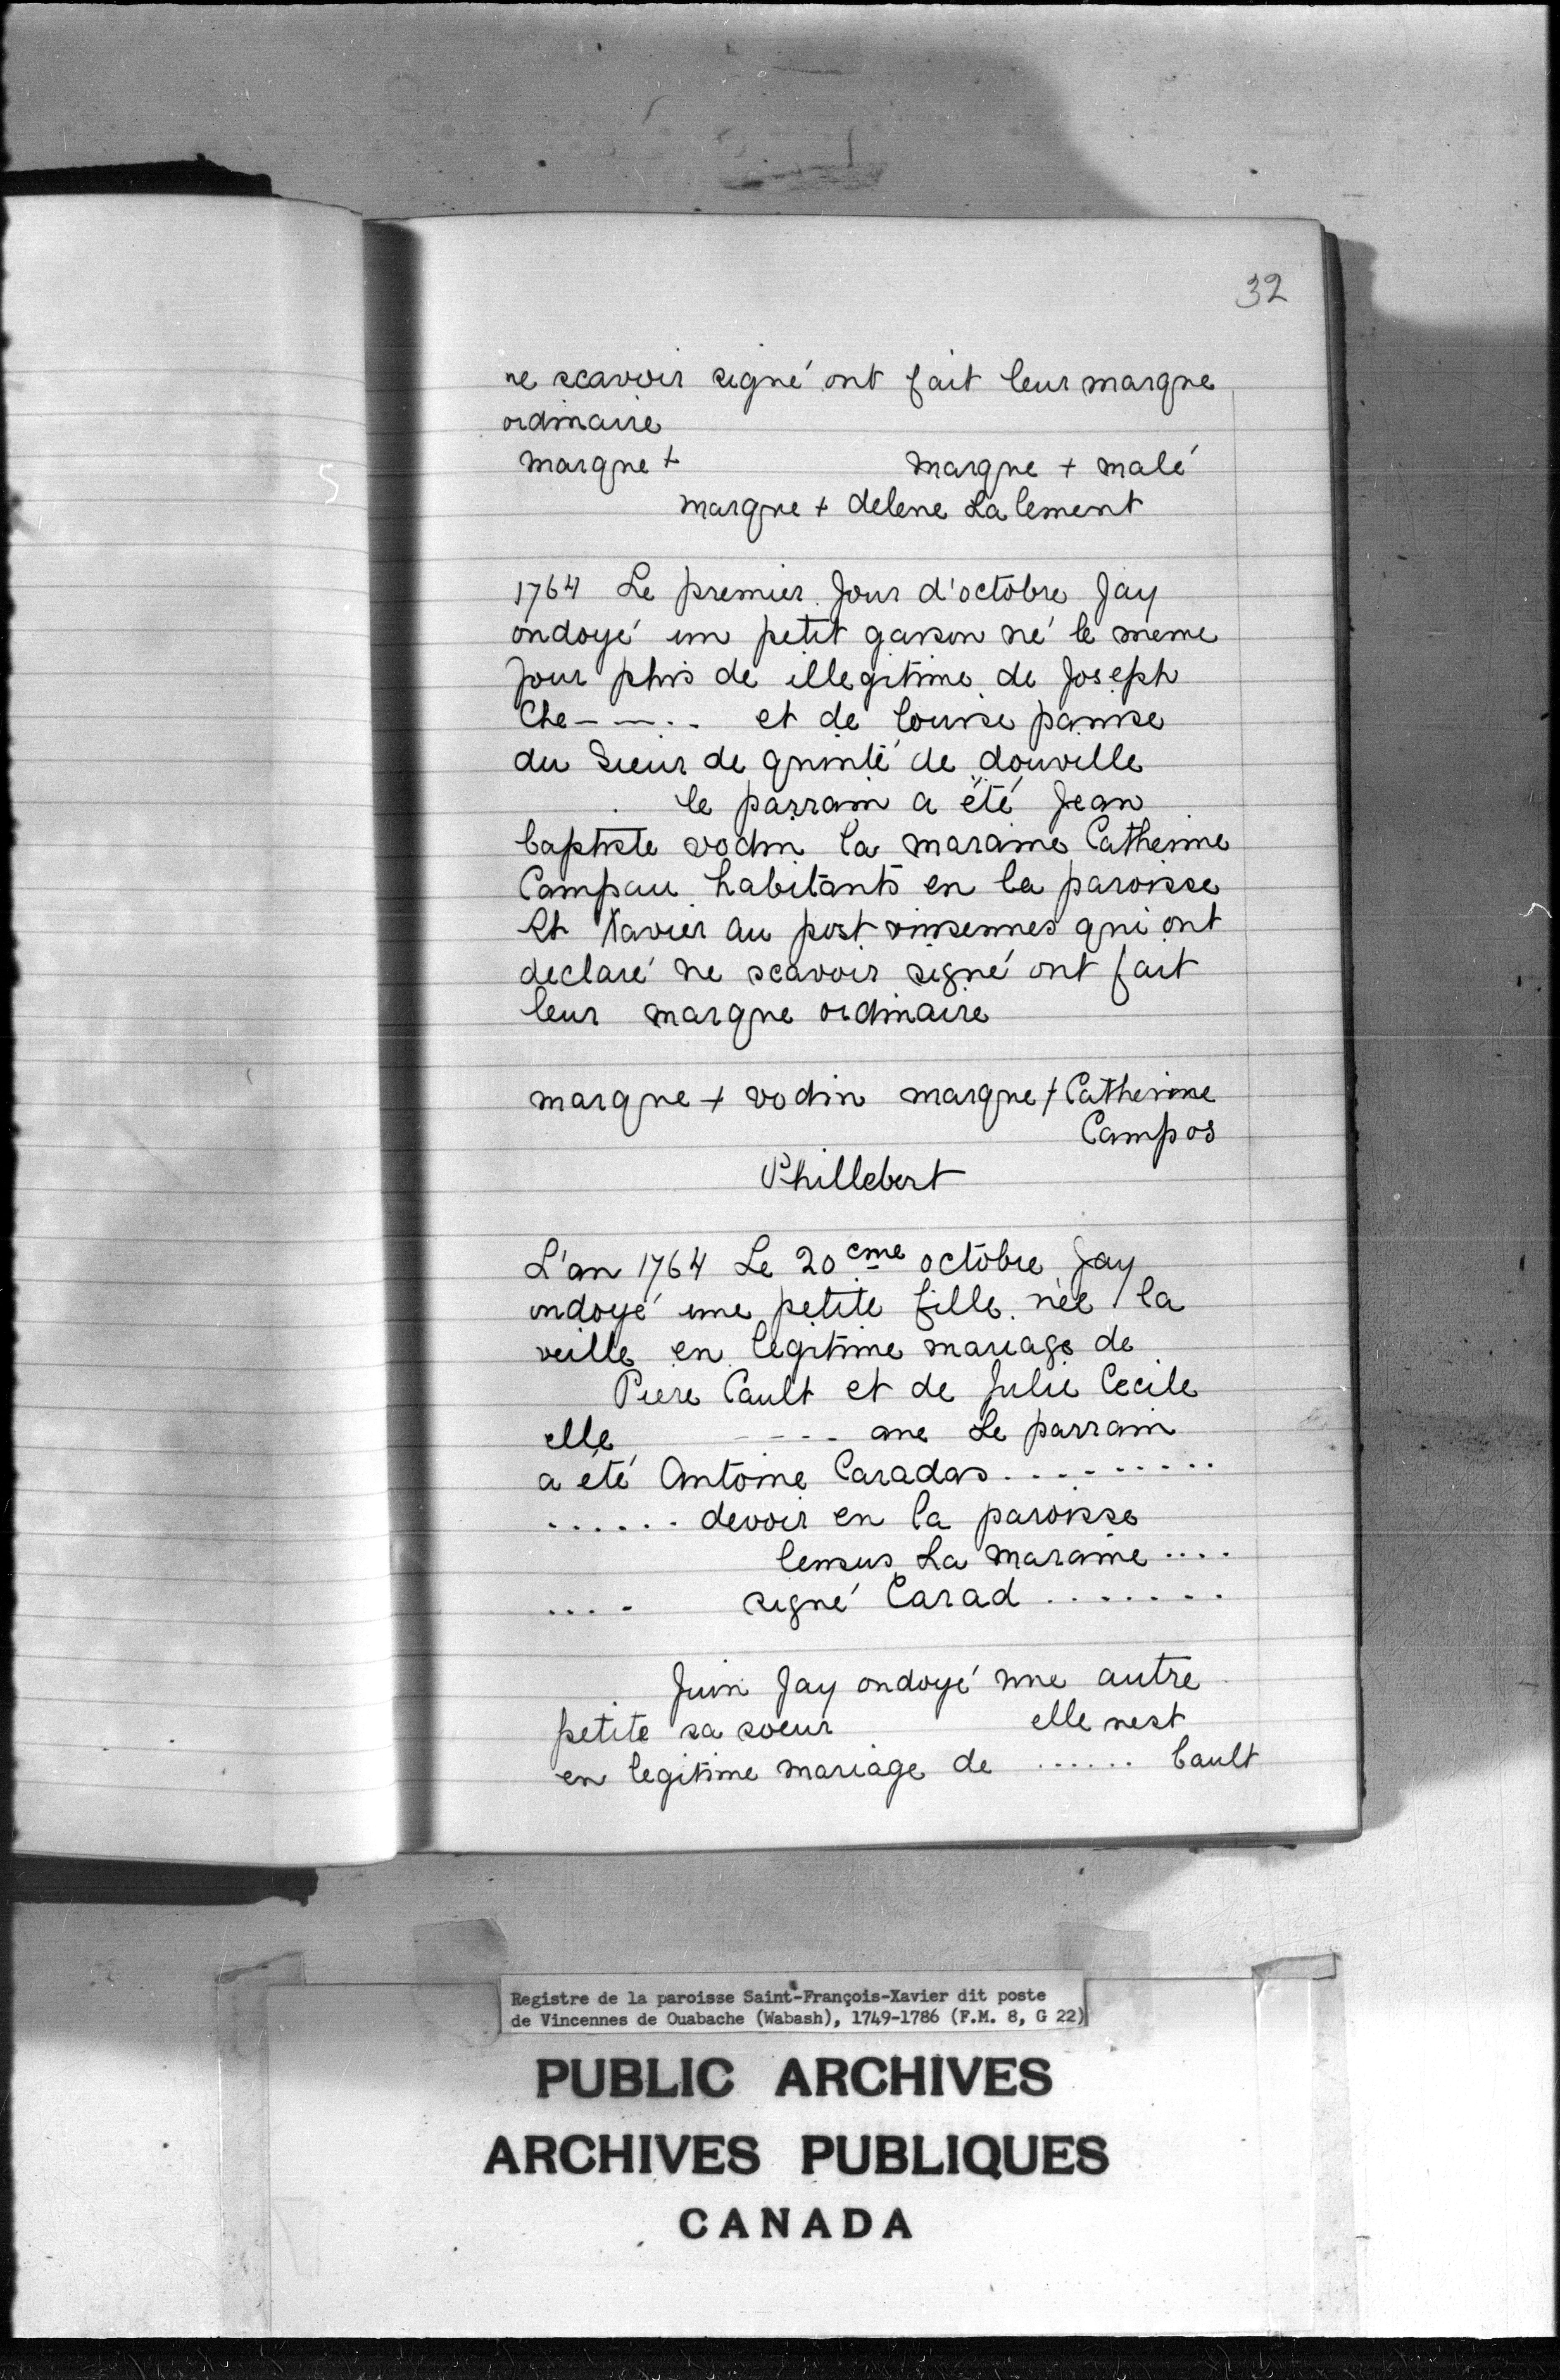 32
ne scavoir signé ont fait leur marque
ordinaire
marque + marque + malé
marque + delene Lalement
1764 Le premier Jour d'octobre Jay
ondoyé un petit garson né le meme
Jour phis de illegitime de Joseph
Che----. et de louise panise
du Sieur de quinté de douville
le parrain a été Jean
baptiste vodin la maraine Catherine
Campau habitants en la paroisse
St Xavier au post vinsennes qui ont
declaré ne scavoir signé ont fait
leur marque ordinaire
marque + vodin marque + Catherine
Campos
Phillebert
L'an 1764 Le 20eme octobre Jay
ondoyé une petite fille née la
veille en legitime mariage de
Piere Cault et de Julie Cecile
elle ---- ane Le parrain
a été Antoine Caradas.........
...... devoir en la paroisse
lensus La maraine ....
.... signé Carad .......
Juin Jay ondoyé une autre
petite sa soeur elle nest
en legitime mariage de ...... Cault
Registre de la paroisse Saint-François-Xavier dit poste
de Vincennes de Ouabache (Wabash), 1749-1786 (F.M. 8, G 22)
PUBLIC ARCHIVES
ARCHIVES PUBLIQUES
CANADA